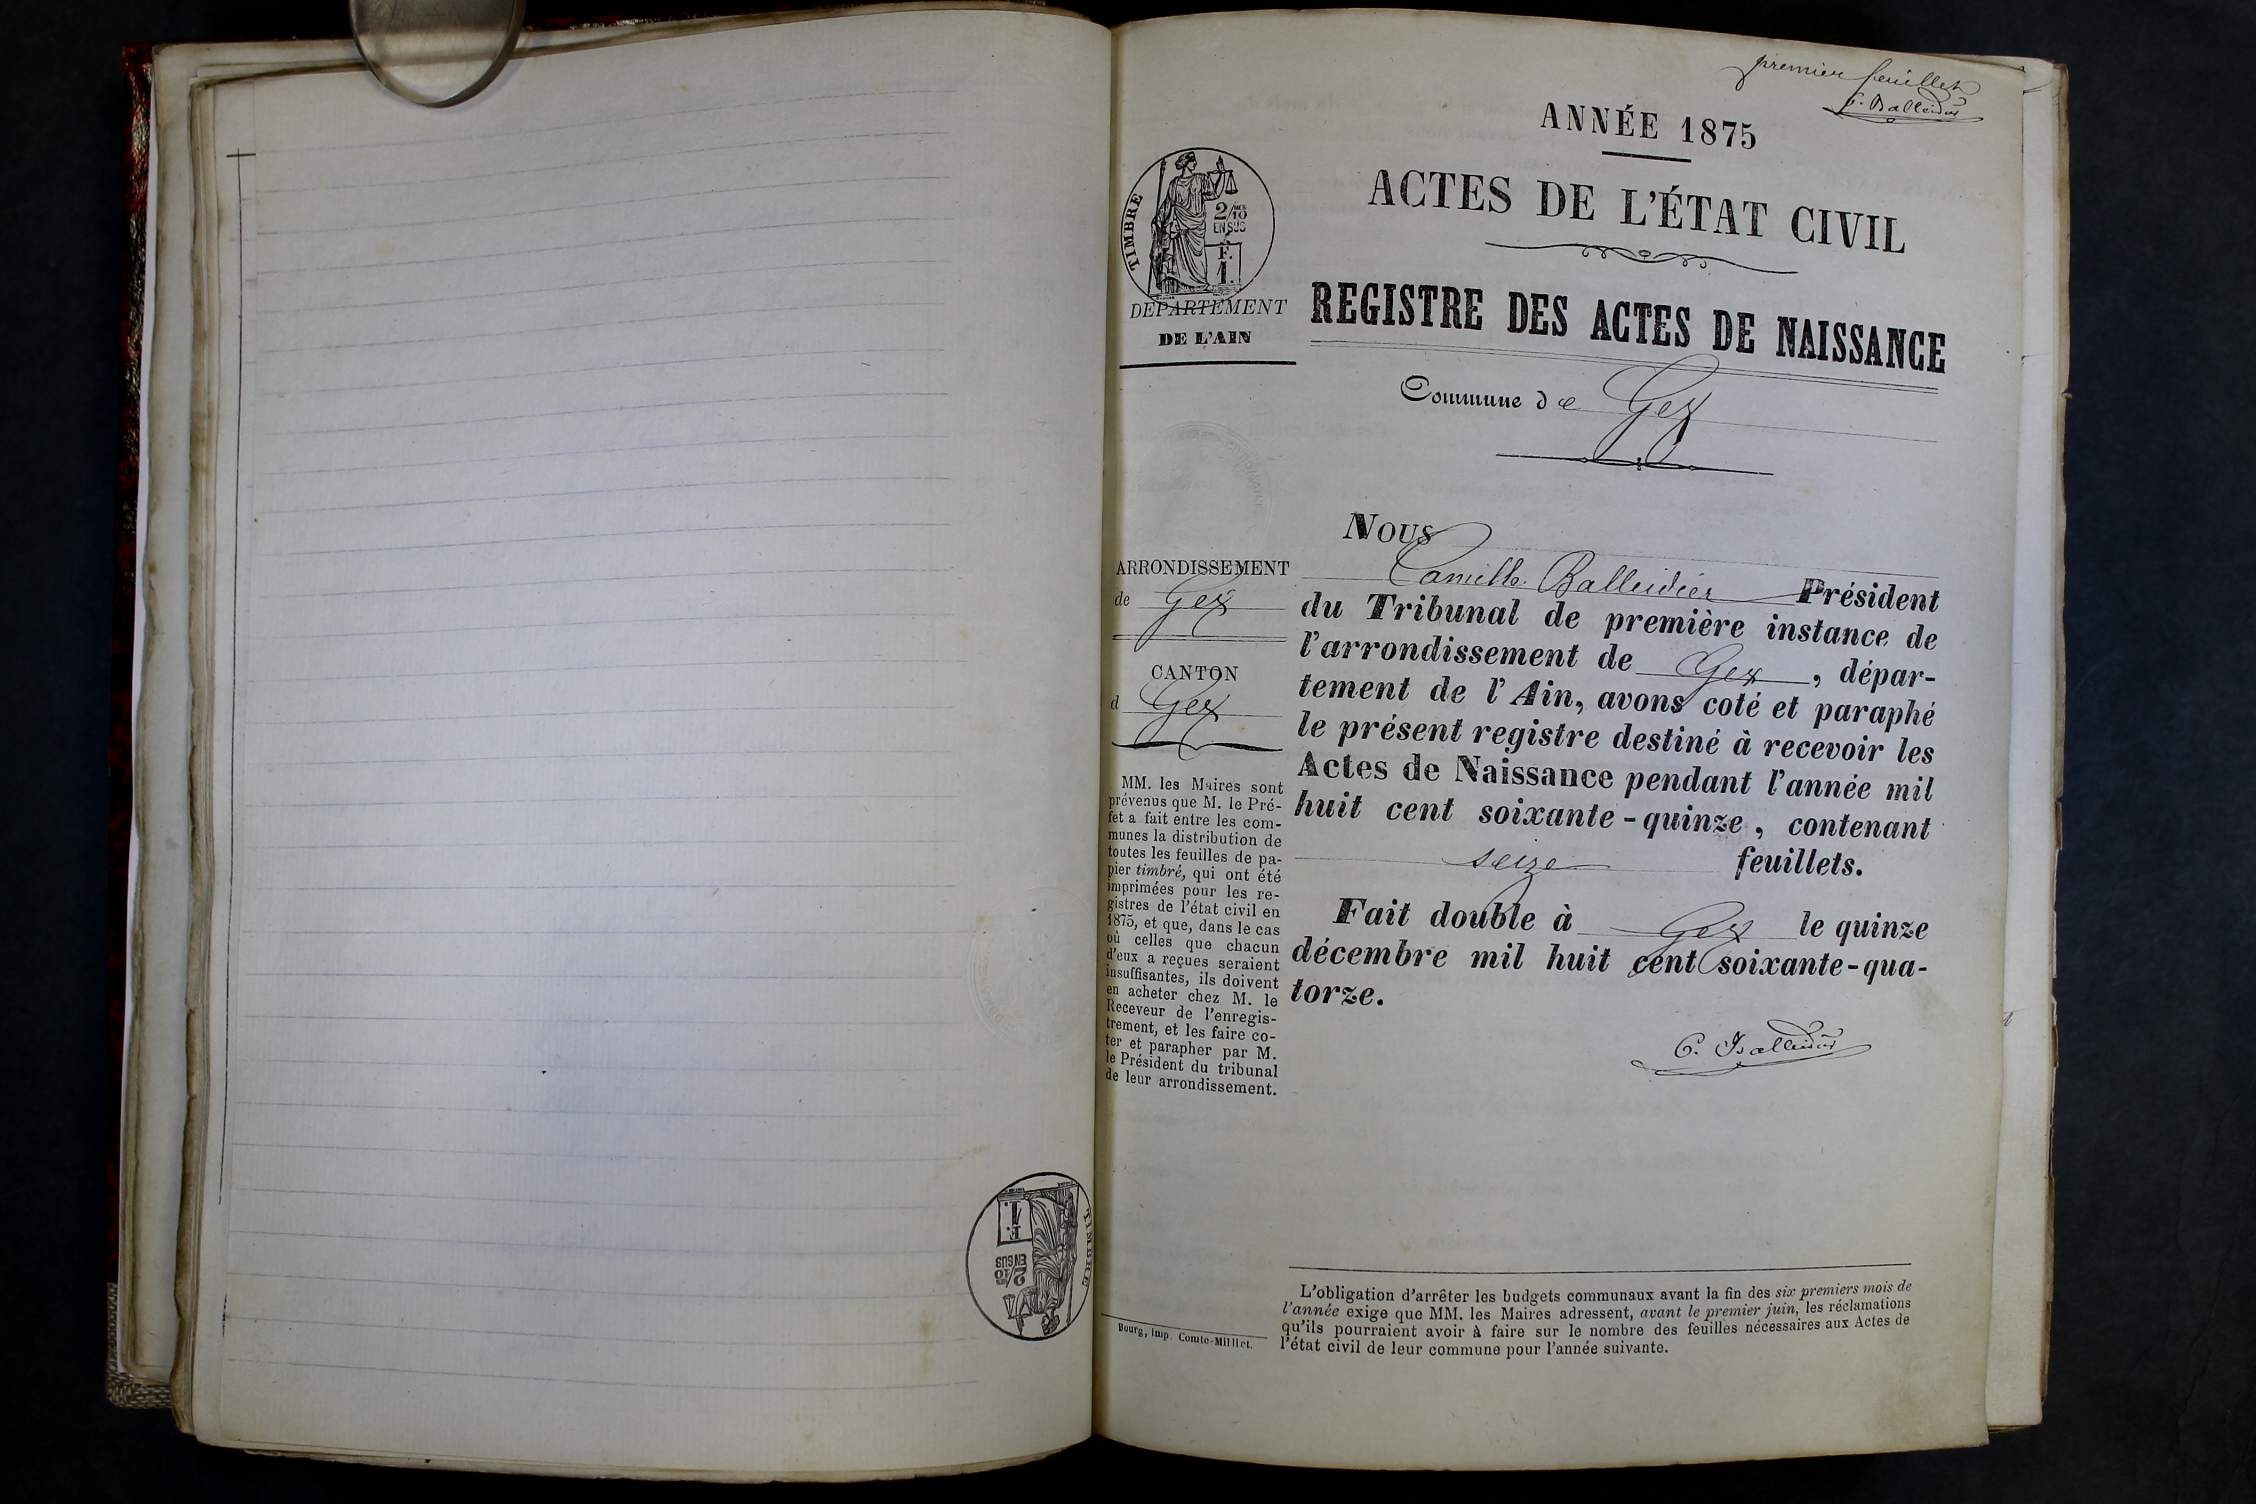 premier feuillet
C. Balleidier
ANNÉE 1875
ACTES DE L'ÉTAT CIVIL
TIMBRE
2/10
EN SUS
F.
1.
DÉPARTEMENT
DE L'AIN
REGISTRE DES ACTES DE NAISSANCE
Commune de Gex
ARRONDISSEMENT
de Gex
CANTON
d Gex
MM. les Maires sont
prévenus que M. le Pré-
fet a fait entre les com-
munes la distribution de
toutes les feuilles de pa-
pier timbré, qui ont été
imprimées pour les re-
gistres de l'état civil en
1875, et que, dans le cas
où celles que chacun
d'eux a reçues seraient
insuffisantes, ils doivent
en acheter chez M. le
Receveur de l'enregis-
trement, et les faire co-
ter et parapher par M.
le Président du tribunal
de leur arrondissement.
Nous
Camille Balleidier Président
du Tribunal de première instance de
l'arrondissement de Gex, dépar-
tement de l'Ain, avons coté et paraphé
le présent registre destiné à recevoir les
Actes de Naissance pendant l'année mil
huit cent soixante-quinze, contenant
seize feuillets.
Fait double à Gex le quinze
décembre mil huit cent soixante-qua-
torze.
C. Balleidier
L'obligation d'arrêter les budgets communaux avant la fin des six premiers mois de
l'année exige que MM. les Maires adressent, avant le premier juin, les réclamations
qu'ils pourraient avoir à faire sur le nombre des feuilles nécessaires aux Actes de
l'état civil de leur commune pour l'année suivante.
Bourg, imp. Comte-Milliet.
TIMBRE
2/10
EN SUS
F.
1.